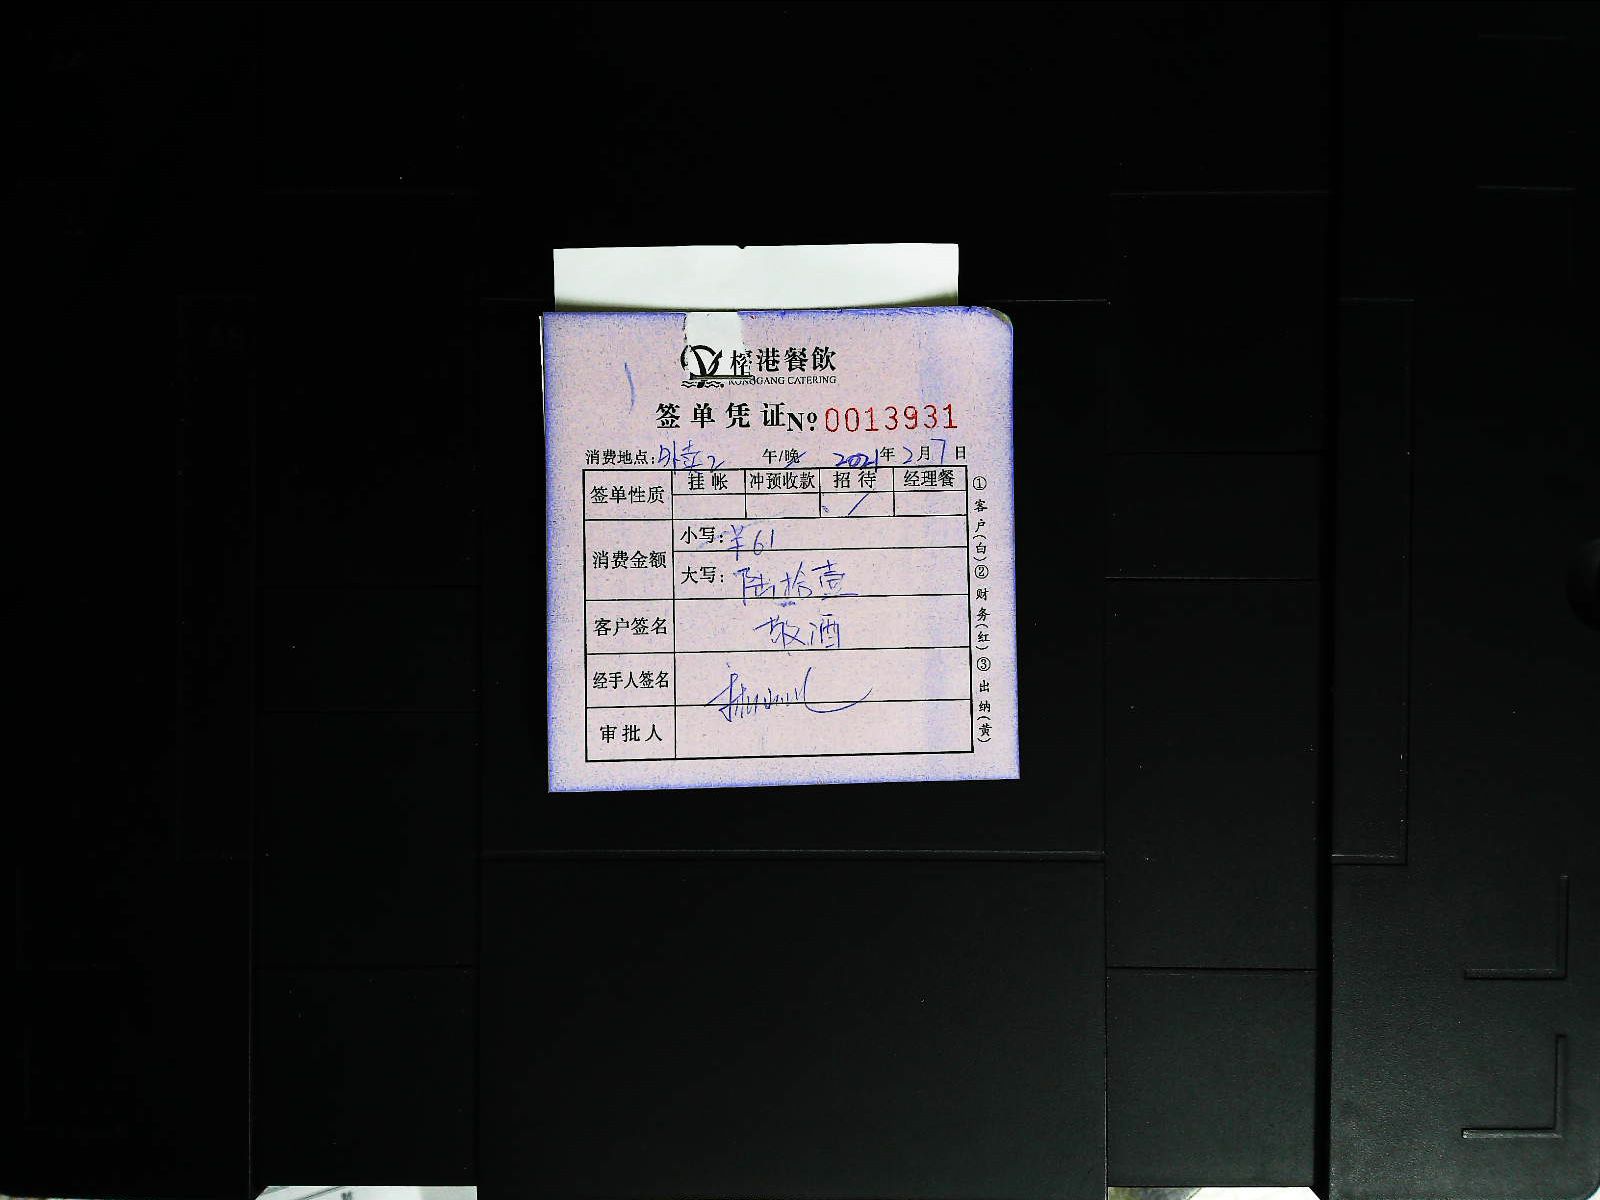 榕港餐飲
RONGGANG CATERING
签单凭证 №0013931
消费地点:外卖2 午/晚 2021年2月7日
签单性质 挂帐 冲预收款 招待 经理餐
消费金额 小写:¥61
大写:陆拾壹
客户签名 敬酒
经手人签名
审批人
①客户(白)②财务(红)③出纳(黄)